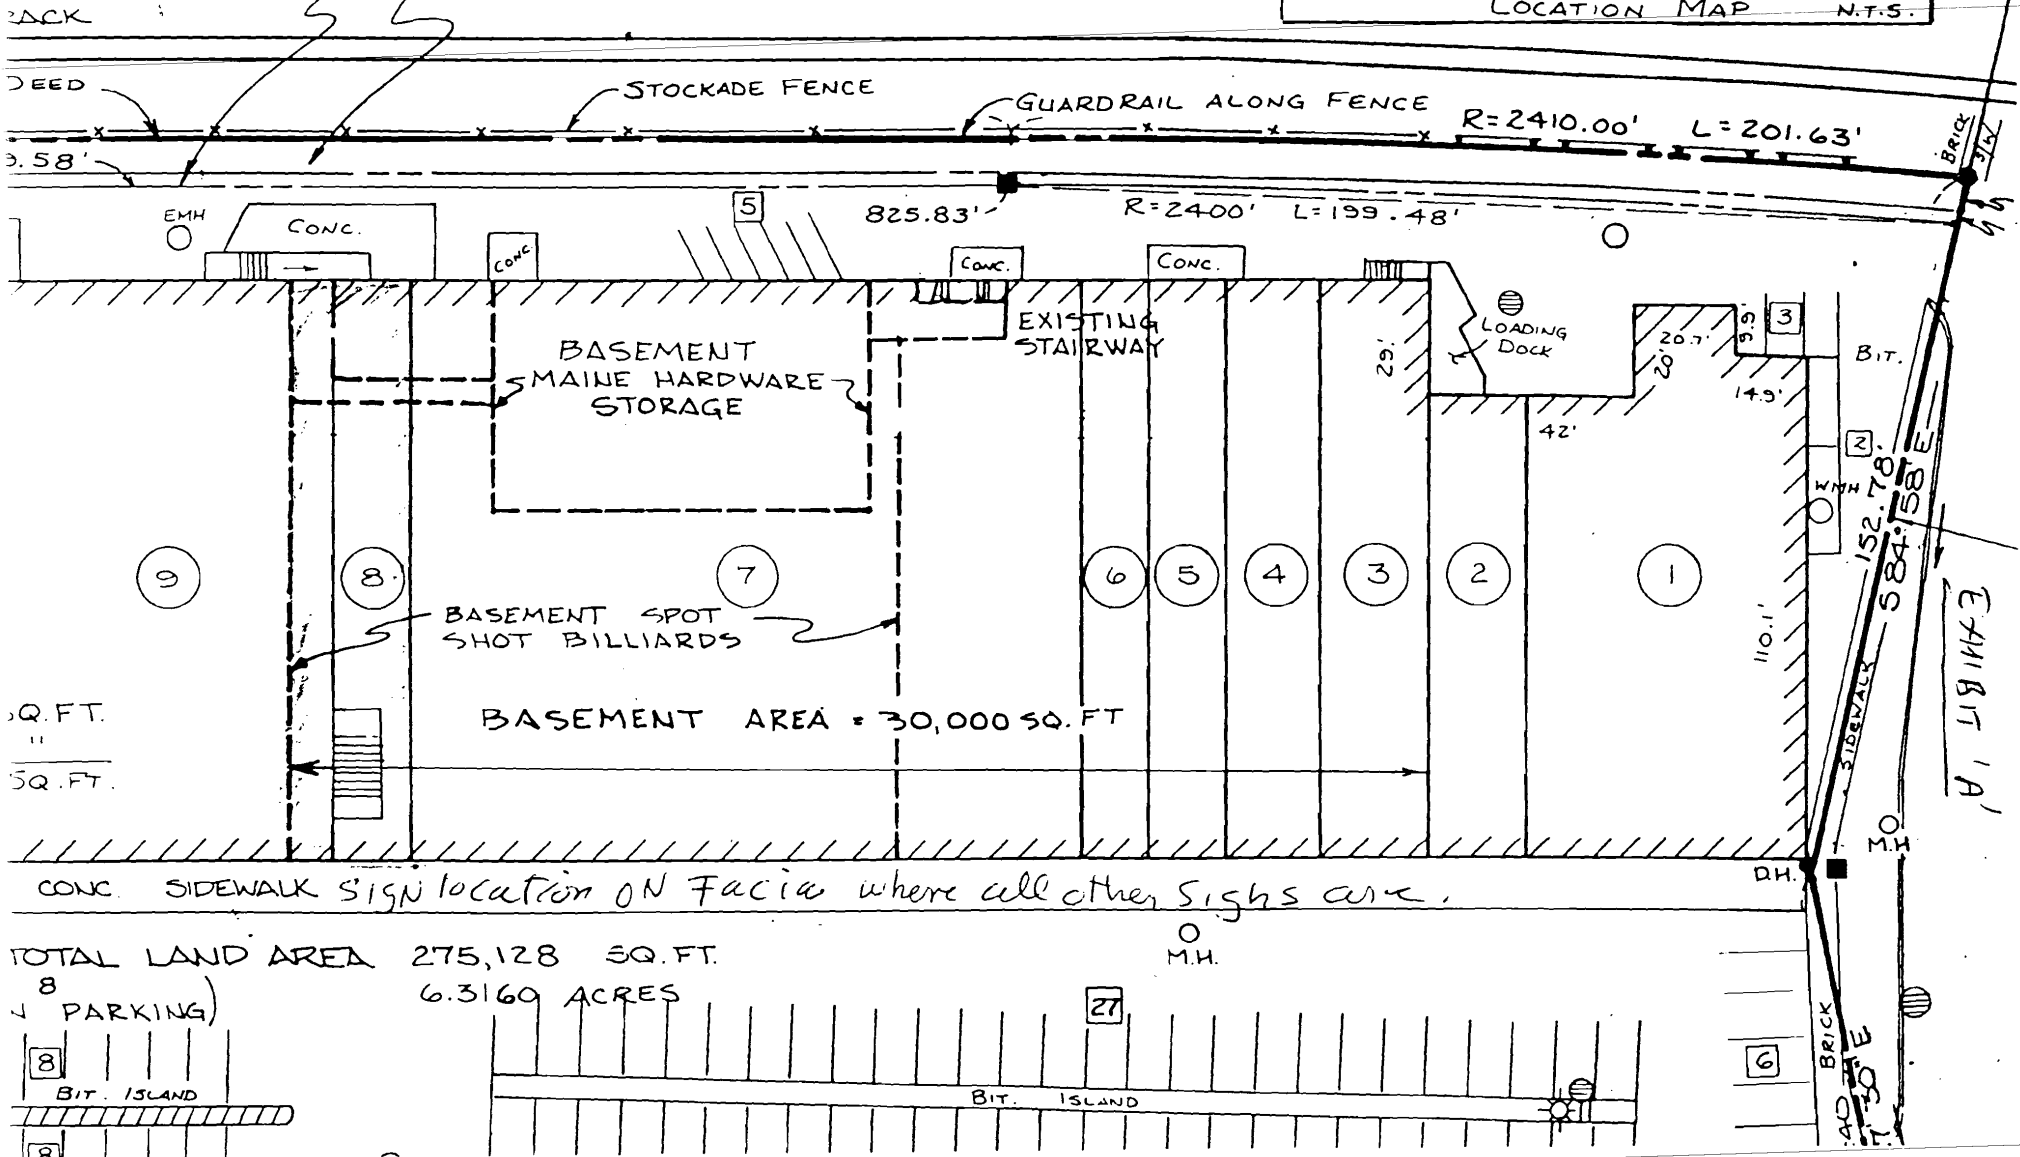 LOCATION MAP N.T.S.
STOCKADE FENCE
GUARDRAIL ALONG FENCE
R=2410.00' L=201.63'
BRICK
S/W
EMH
CONC.
CONC.
5
825.83'
R=2400' L=199.48'
CONC.
CONC.
EXISTING
STAIRWAY
BASEMENT
MAINE HARDWARE
STORAGE
29'
LOADING
DOCK
20.7'
20'
9.9'
3
14.9'
42'
BIT.
2
WMH
152.78'
S 84°58' E
9
8
7
6
5
4
3
2
1
BASEMENT SPOT
SHOT BILLIARDS
110.1'
SIDEWALK
EXHIBIT 'A'
BASEMENT AREA = 30,000 SQ. FT
SQ.FT.
"
SQ.FT.
M.H
D.H.
CONC. SIDEWALK Sign location ON Facia where all other Signs are.
TOTAL LAND AREA 275,128 SQ.FT.
6.3160 ACRES
8
PARKING)
M.H.
27
8
BIT. ISLAND
BIT. ISLAND
6
BRICK
8